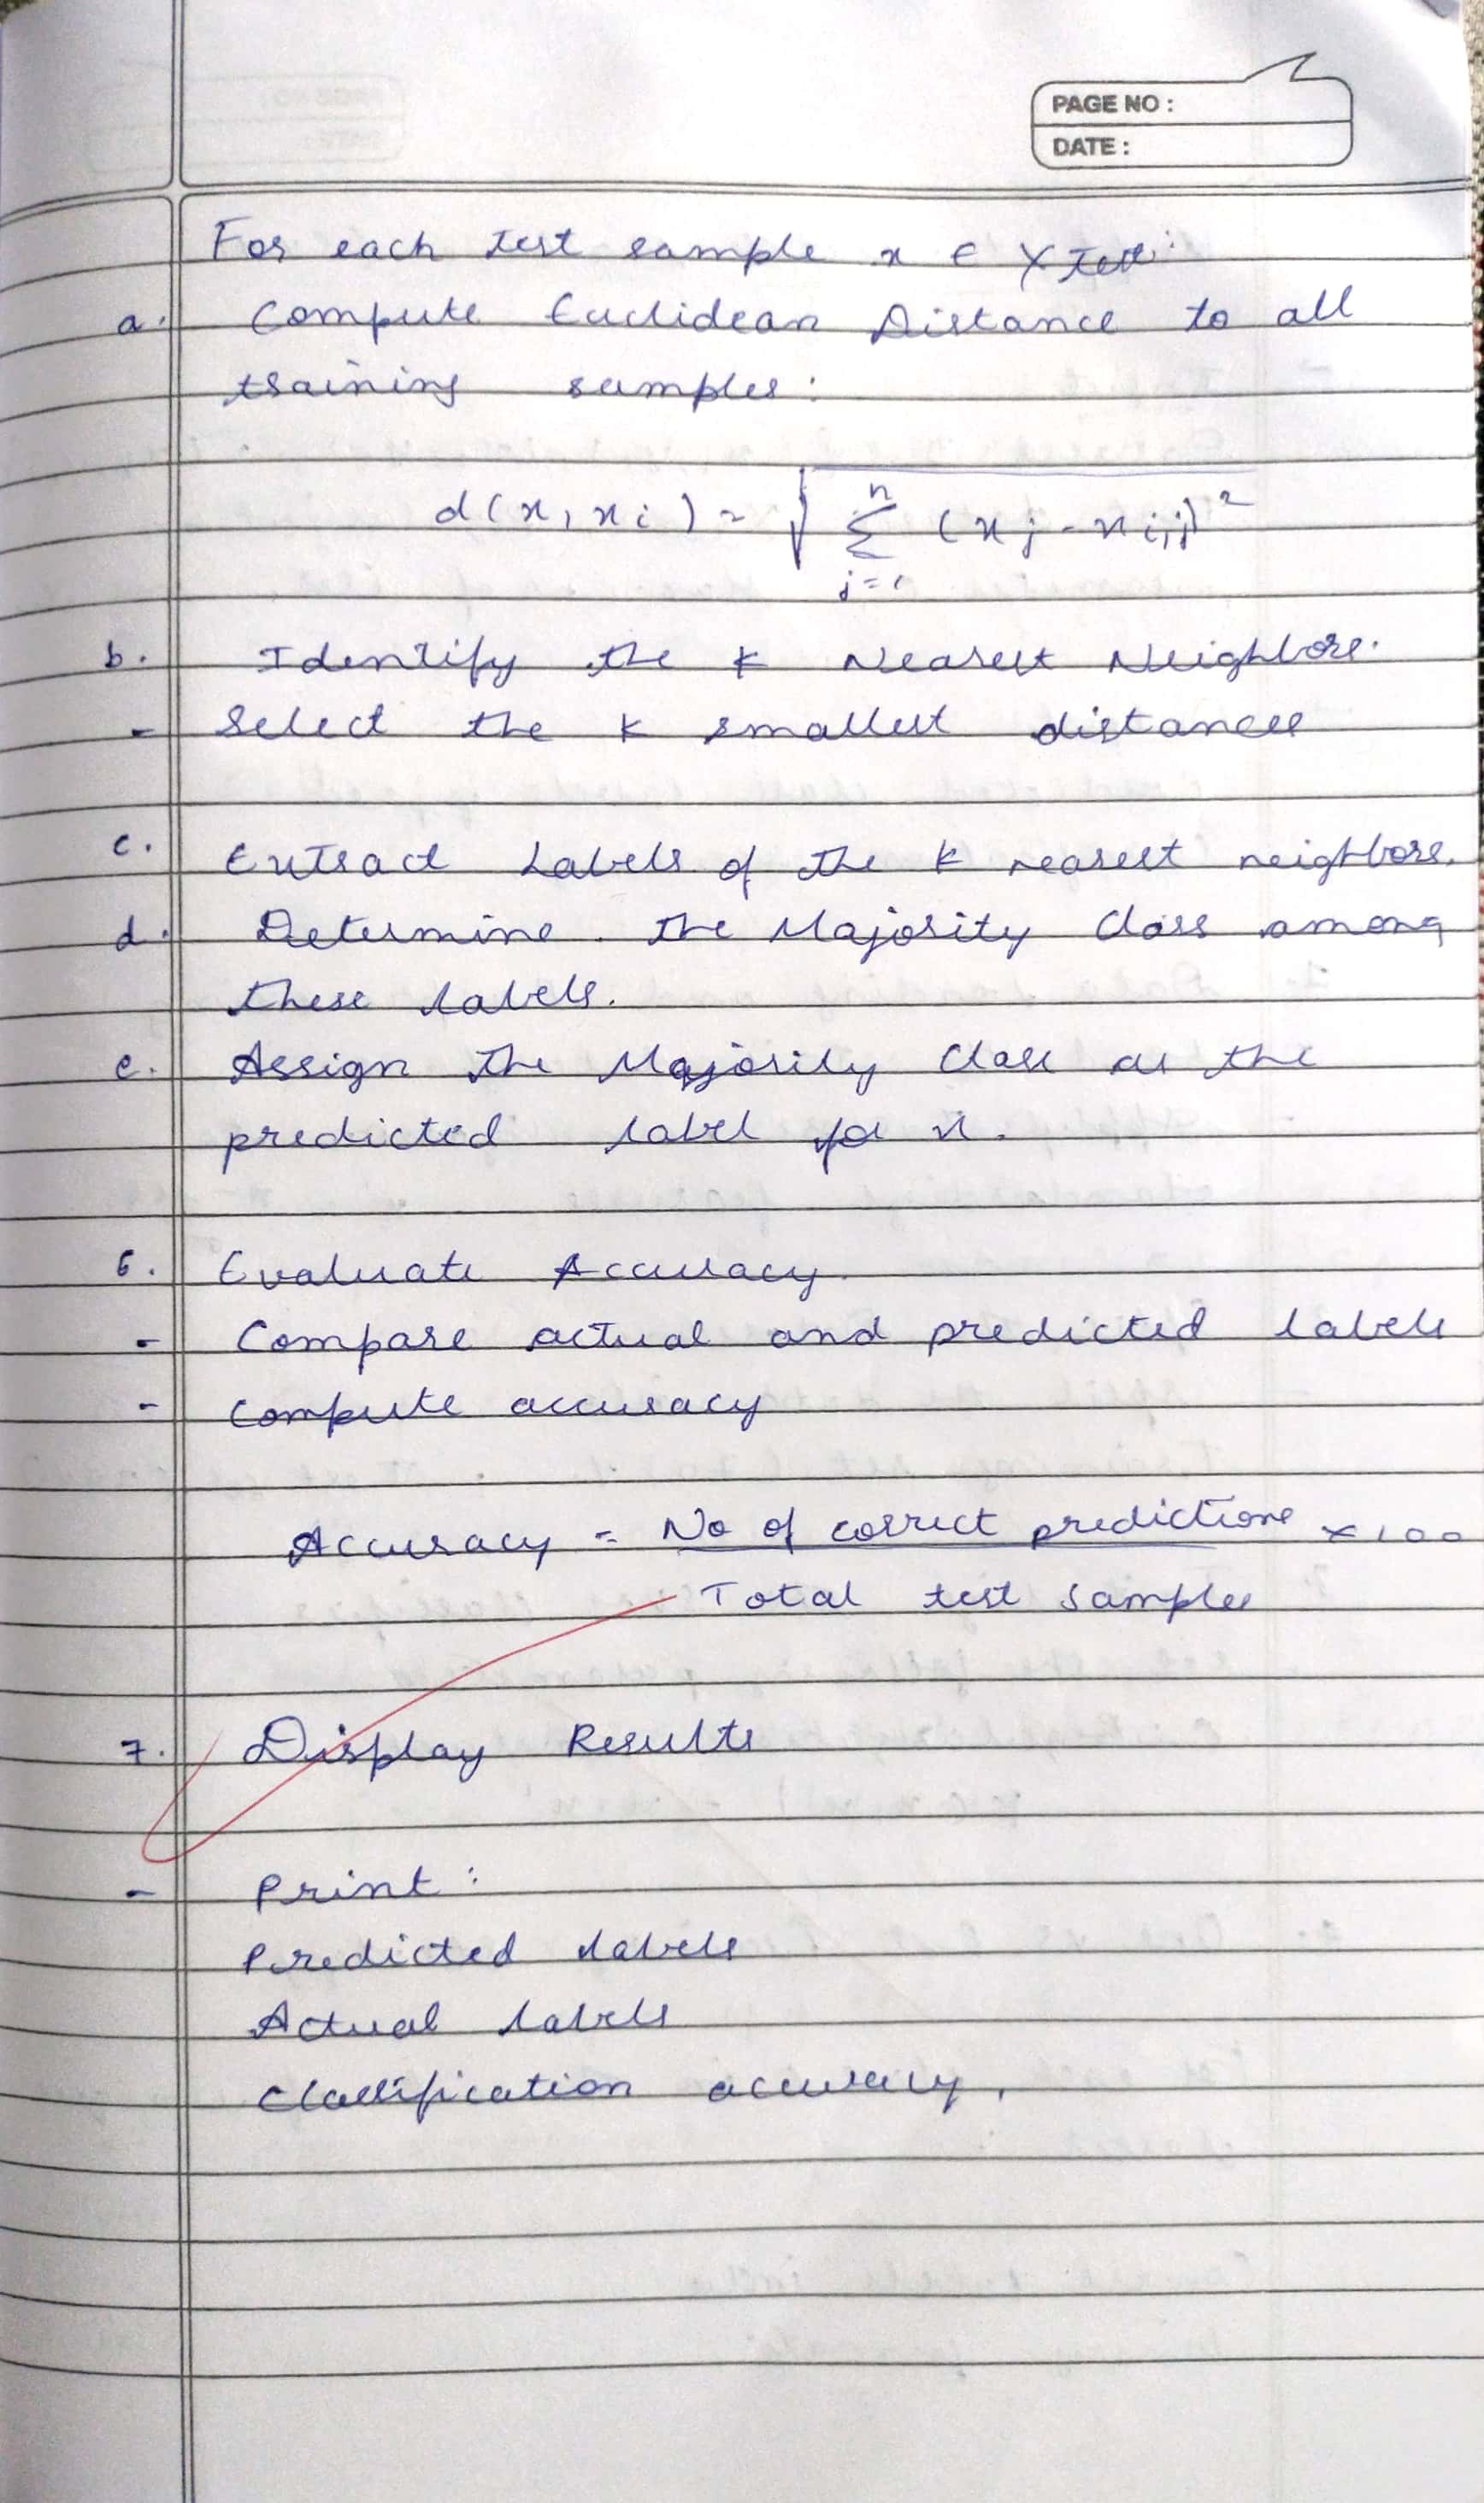 PAGE NO :
DATE :
For each test sample x ∈ X test:
a. Compute Euclidean Distance to all
training samples:
d(x, xi) = √ Σ (j=1 to n) (xj - xi,j)²
b. Identify the k Nearest Neighbors.
- Select the k smallest distances
c. Extract Labels of the k nearest neighbors.
d. Determine the Majority Class among
these labels.
e. Assign the Majority Class as the
predicted label for x.
6. Evaluate Accuracy.
- Compare actual and predicted labels
- Compute accuracy
Accuracy = No of correct predictions × 100
Total test samples
7. Display Results
- Print :
Predicted labels
Actual labels
Classification accuracy.